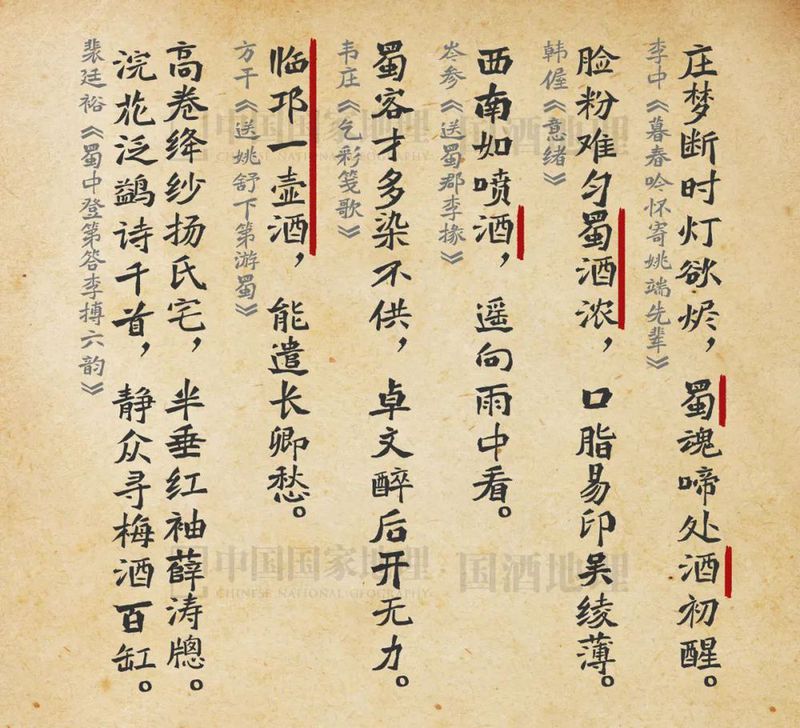 庄梦断时灯欲烬，蜀魂啼处酒初醒。
李中《暮春吟怀寄姚端先辈》
脸粉难匀蜀酒浓，口脂易印吴绫薄。
韩偓《意绪》
西南如喷酒，遥向雨中看。
岑参《送蜀郡李掾》
蜀客才多染不供，卓文醉后开无力。
韦庄《乞彩笺歌》
临邛一壶酒，能遣长卿愁。
方干《送姚舒下第游蜀》
高卷绛纱扬氏宅，半垂红袖薛涛窗。
浣花泛鹢诗千首，静众寻梅酒百缸。
裴廷裕《蜀中登第答李搏六韵》
中国国家地理
CHINESE NATIONAL GEOGRAPHY
国酒地理
中国国家地理
CHINESE NATIONAL GEOGRAPHY
国酒地理